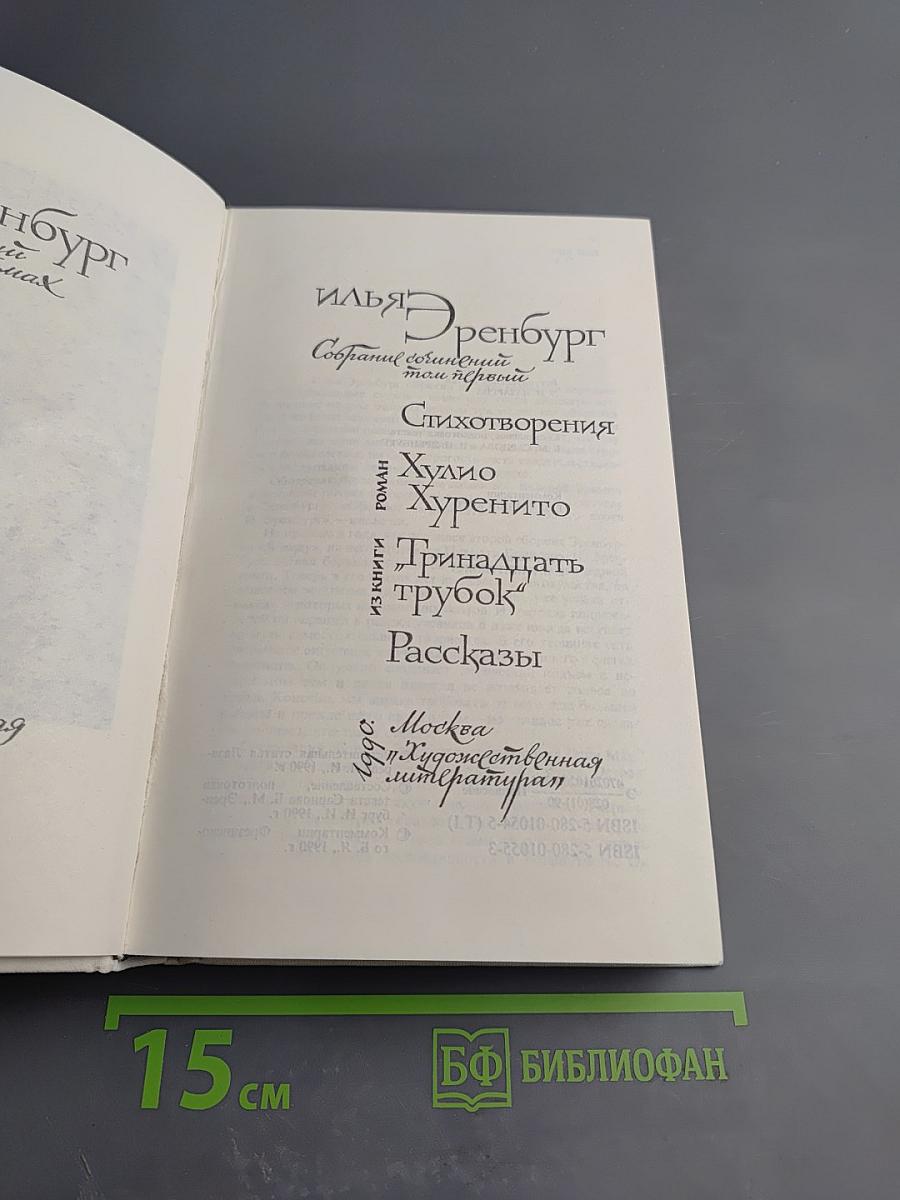 нбург
ий
мах
ая
Илья Эренбург
Собрание сочинений
том первый
Стихотворения
роман
Хулио
Хуренито
из книги
„Тринадцать
трубок“
Рассказы
1990.
Москва
„Художественная
литература”
ISBN 5-280-01054-5 (Т.1)
ISBN 5-280-01055-3
15 см
БФ БИБЛИОФАН